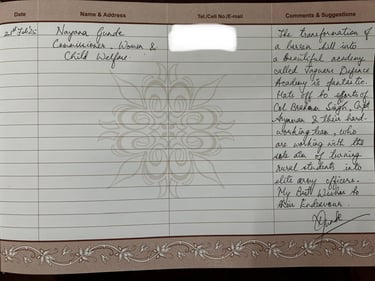 Date
Name & Address
Tel./Cell No./E-mail
Comments & Suggestions
21st Feb'25
Nayana Gunde
Commissioner, Women &
Child Welfare
The transformation of
a barren hill into
a beautiful academy
called Defence
Academy is fantastic.
Hats off to efforts of
Col Singh, Capt
& their hard-
working team, who
are working with the
sole aim of turning
rural students into
elite army officers.
My Best Wishes to
their Endeavour.